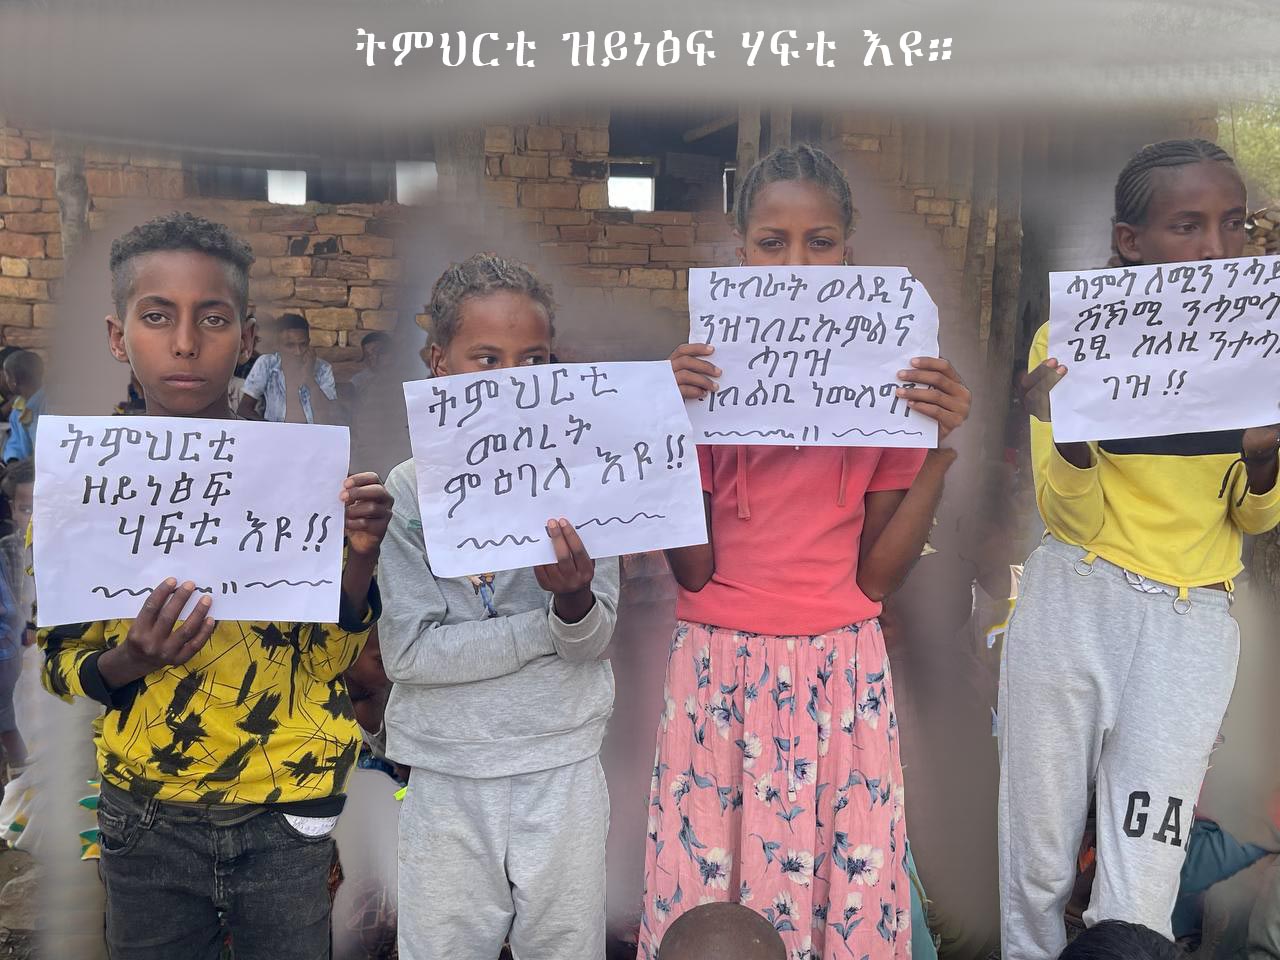 ትምህርቲ ዝይነፅፍ ሃፍቲ እዩ።
ትምህርቲ
ዘይነፅፍ
ሃፍቲ እዩ!!
ትምህርቲ
መሰረት
ምዕባለ እዩ!!
ኩብራት ወለዲና
ንዝገበርኩምልና
ሓገዝ
ብልቢ ነመስግን
ሓምሳ ለሚን
ንሓምሳ
ጌፂ ስለዚ
ገዝ!!
GA